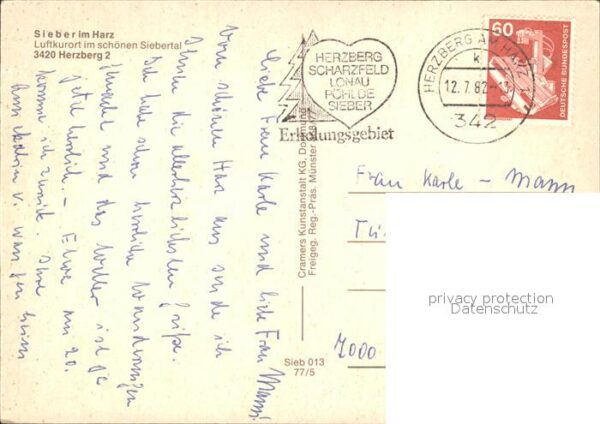 Sieber im Harz
Luftkurort im schönen Siebertal
3420 Herzberg 2
HERZBERG
SCHARZFELD
LONAU
PÖHLDE
SIEBER
Erholungsgebiet
HERZBERG AM HARZ 1
k
12.7.82
342
60
DEUTSCHE BUNDESPOST
Liebe Frau Karle und liebe Frau Mann!
Vom schönen Harz aus sende ich
Ihnen die allerherzlichsten Grüße.
Ich habe schon herrliche Wanderungen
gemacht und das Wetter ist ja
jetzt herrlich. – Etwa am 20.
komme ich zurück. Ihre
Cramers Kunstanstalt KG, Dortmund
Freigeg. Reg.-Präs. Münster
Sieb 013
77/5
Frau Karle – Mann
7000
privacy protection
Datenschutz